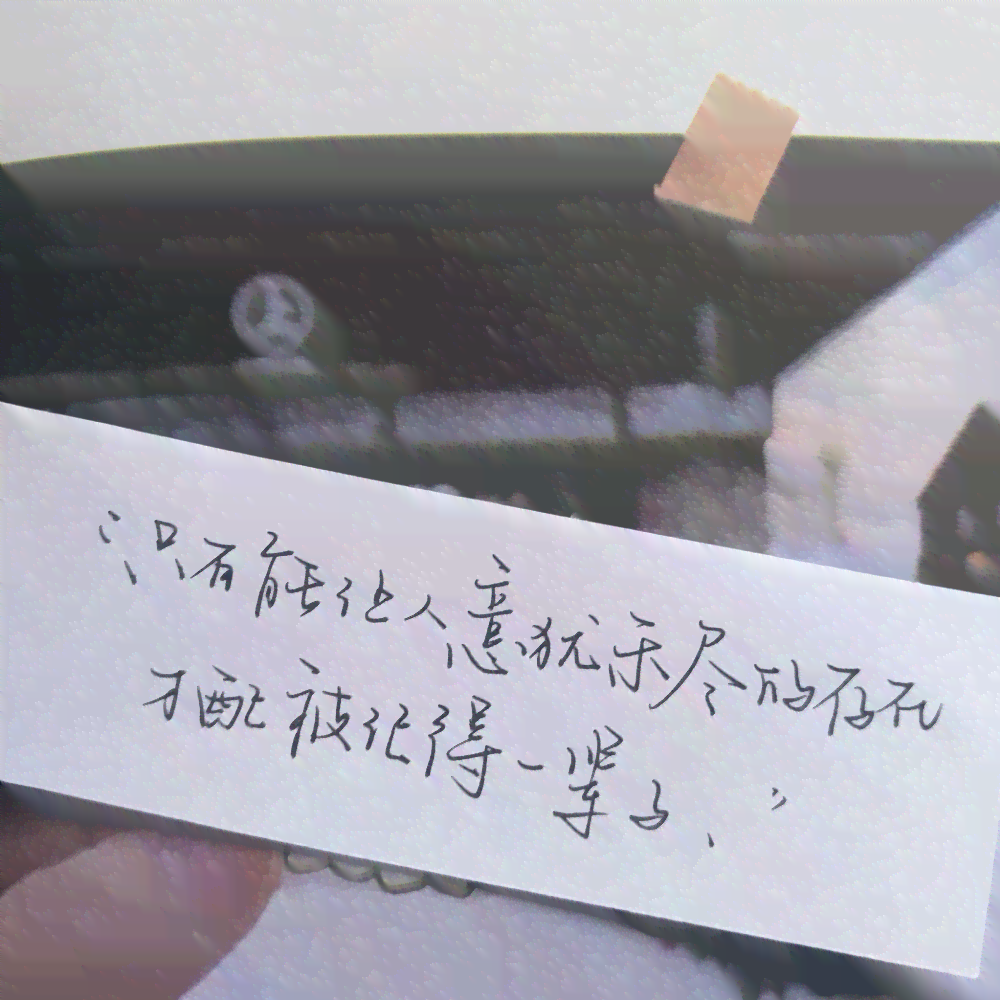 “只有能让人意犹未尽的存在
才配被记得一辈子.”